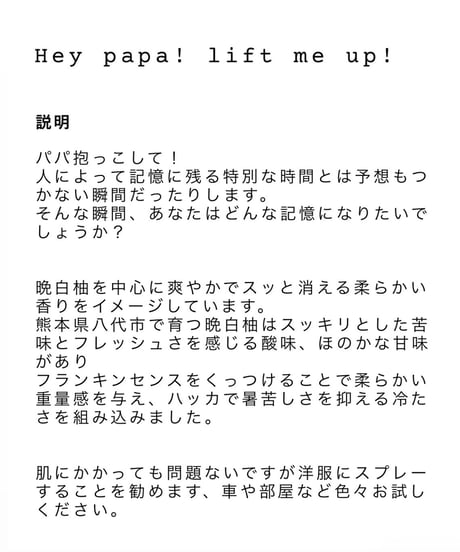 Hey papa! lift me up!
説明
パパ抱っこして！
人によって記憶に残る特別な時間とは予想もつ
かない瞬間だったりします。
そんな瞬間、あなたはどんな記憶になりたいで
しょうか？
晩白柚を中心に爽やかでスッと消える柔らかい
香りをイメージしています。
熊本県八代市で育つ晩白柚はスッキリとした苦
味とフレッシュさを感じる酸味、ほのかな甘味
があり
フランキンセンスをくっつけることで柔らかい
重量感を与え、ハッカで暑苦しさを抑える冷た
さを組み込みました。
肌にかかっても問題ないですが洋服にスプレー
することを勧めます、車や部屋など色々お試し
ください。